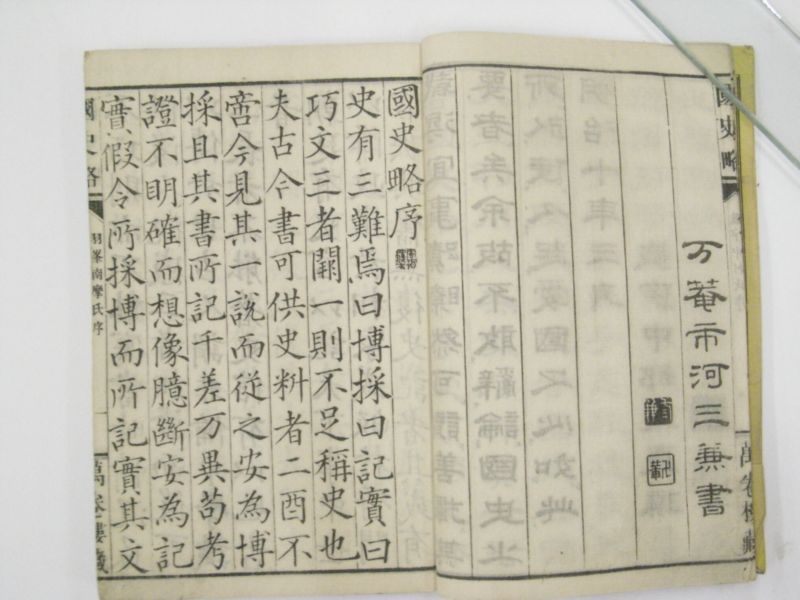 國史略
万菴市河三兼書
萬卷樓藏
國史略序
史有三難焉曰博採曰記實曰
巧文三者闕一則不足稱史也
夫古今書可供史料者二酉不
啻今見其一說而從之安為博
採且其書所記千差万異苟考
證不明確而想像臆斷安為記
實假令所採博而所記實其文
國史略
羽峯南摩氏序
萬卷樓藏